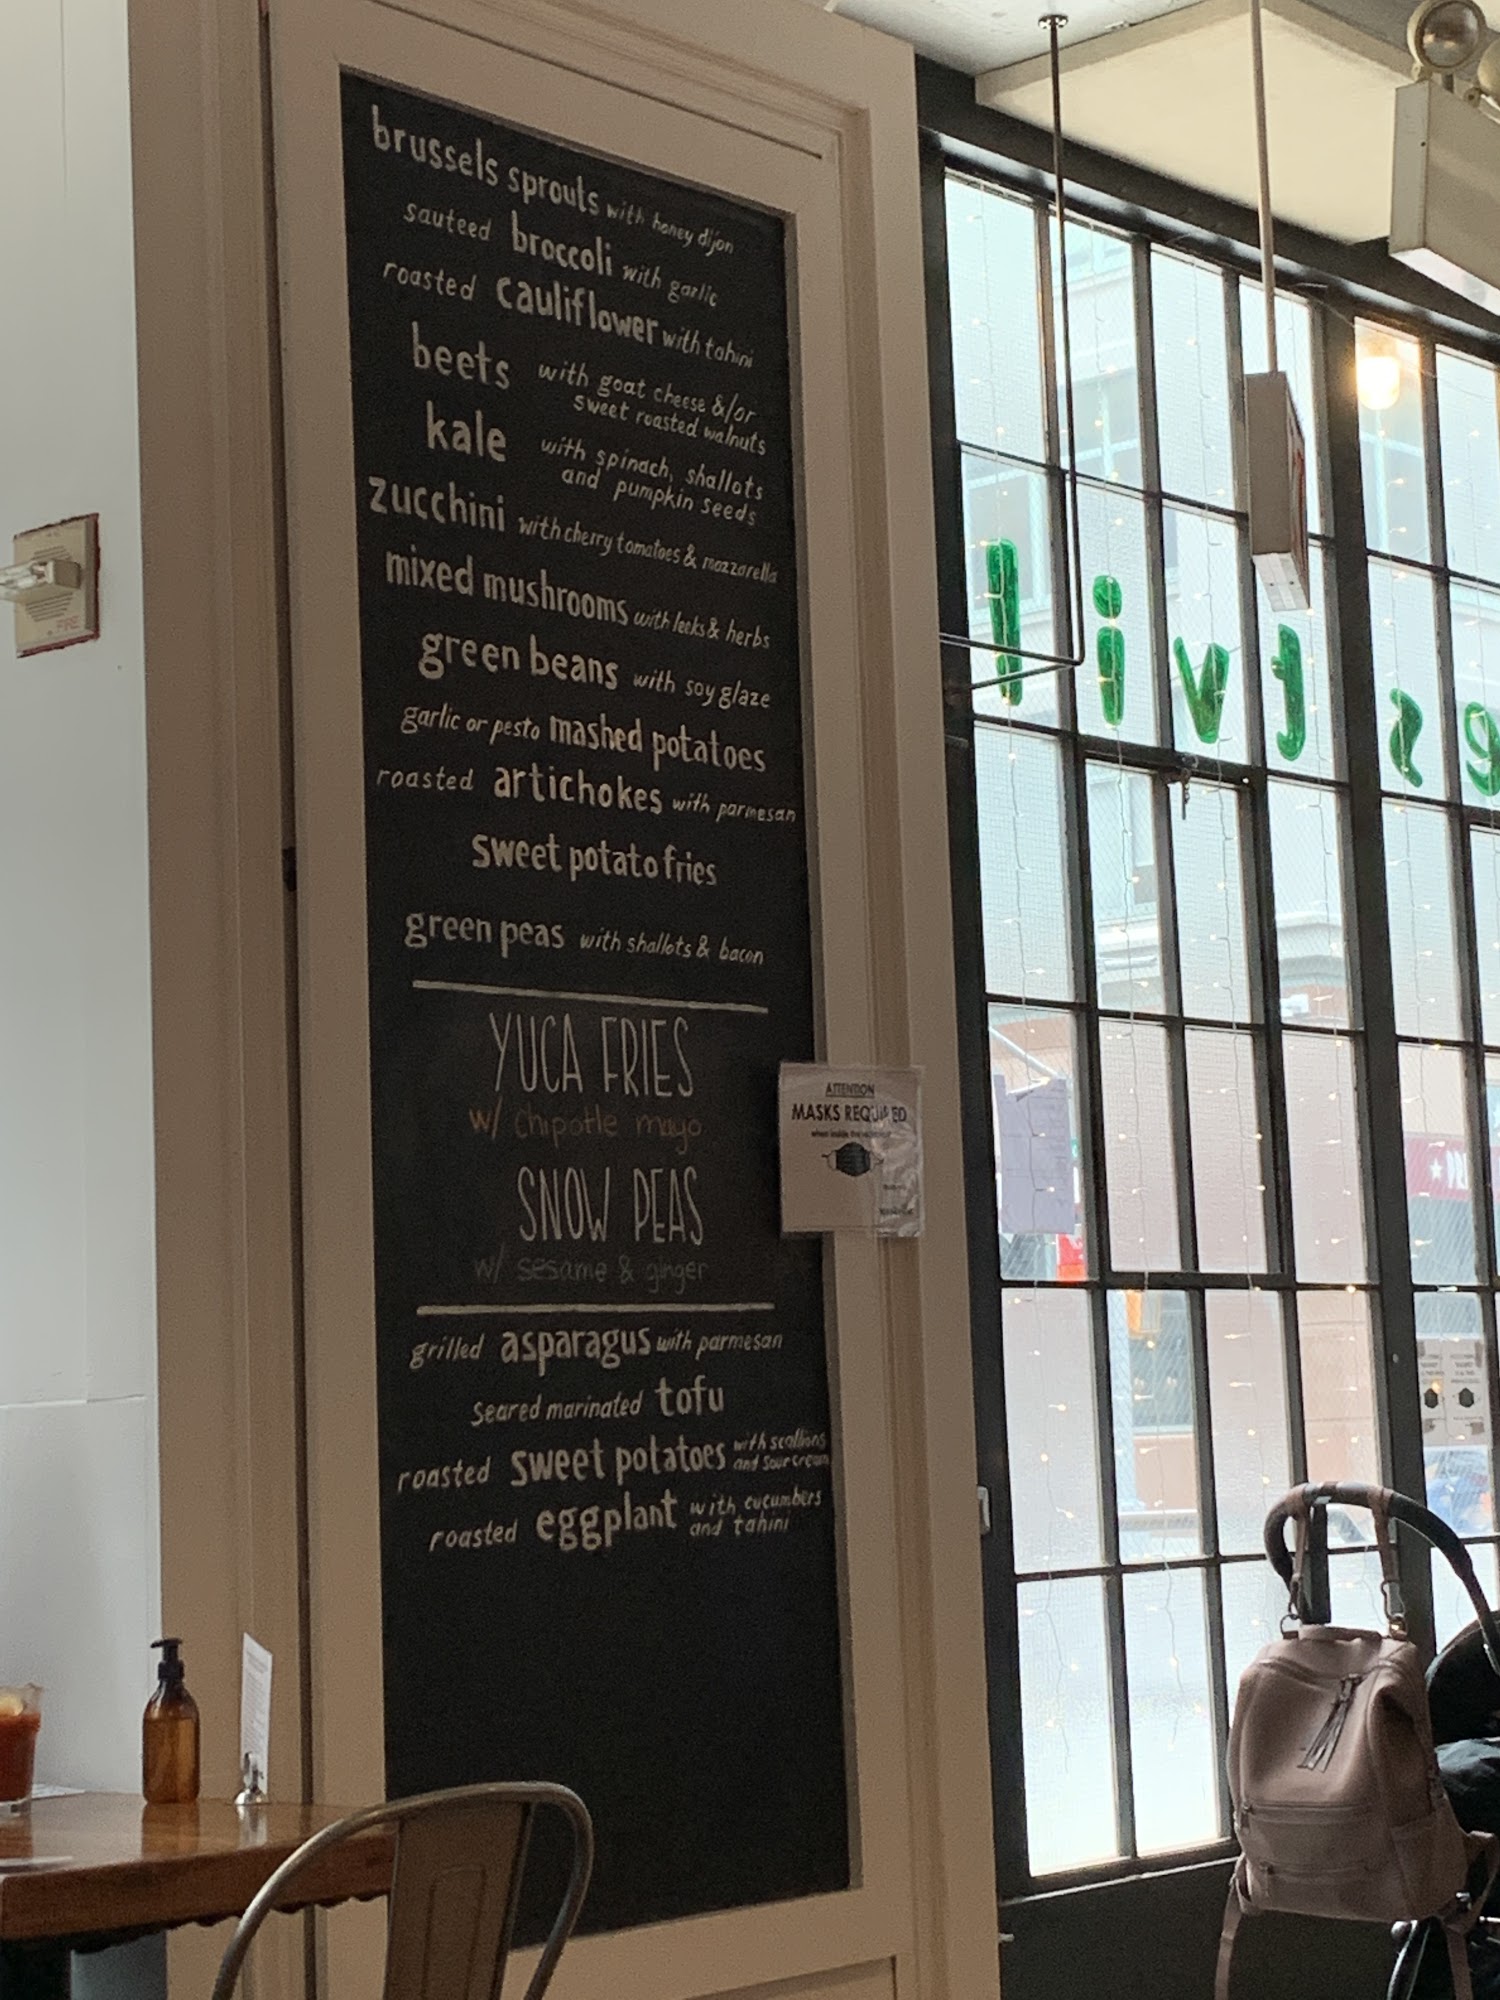 brussels sprouts with honey dijon
sauteed broccoli with garlic
roasted cauliflower with tahini
beets with goat cheese &/or
sweet roasted walnuts
kale with spinach, shallots
and pumpkin seeds
zucchini with cherry tomatoes & mozzarella
mixed mushrooms with leeks & herbs
green beans with soy glaze
garlic or pesto mashed potatoes
roasted artichokes with parmesan
sweet potato fries
green peas with shallots & bacon
YUCA FRIES
w/ chipotle mayo
SNOW PEAS
w/ sesame & ginger
grilled asparagus with parmesan
seared marinated tofu
roasted sweet potatoes with scallions
and sour cream
roasted eggplant with cucumbers
and tahini
ATTENTION
MASKS REQUIRED
FIRE
estvil